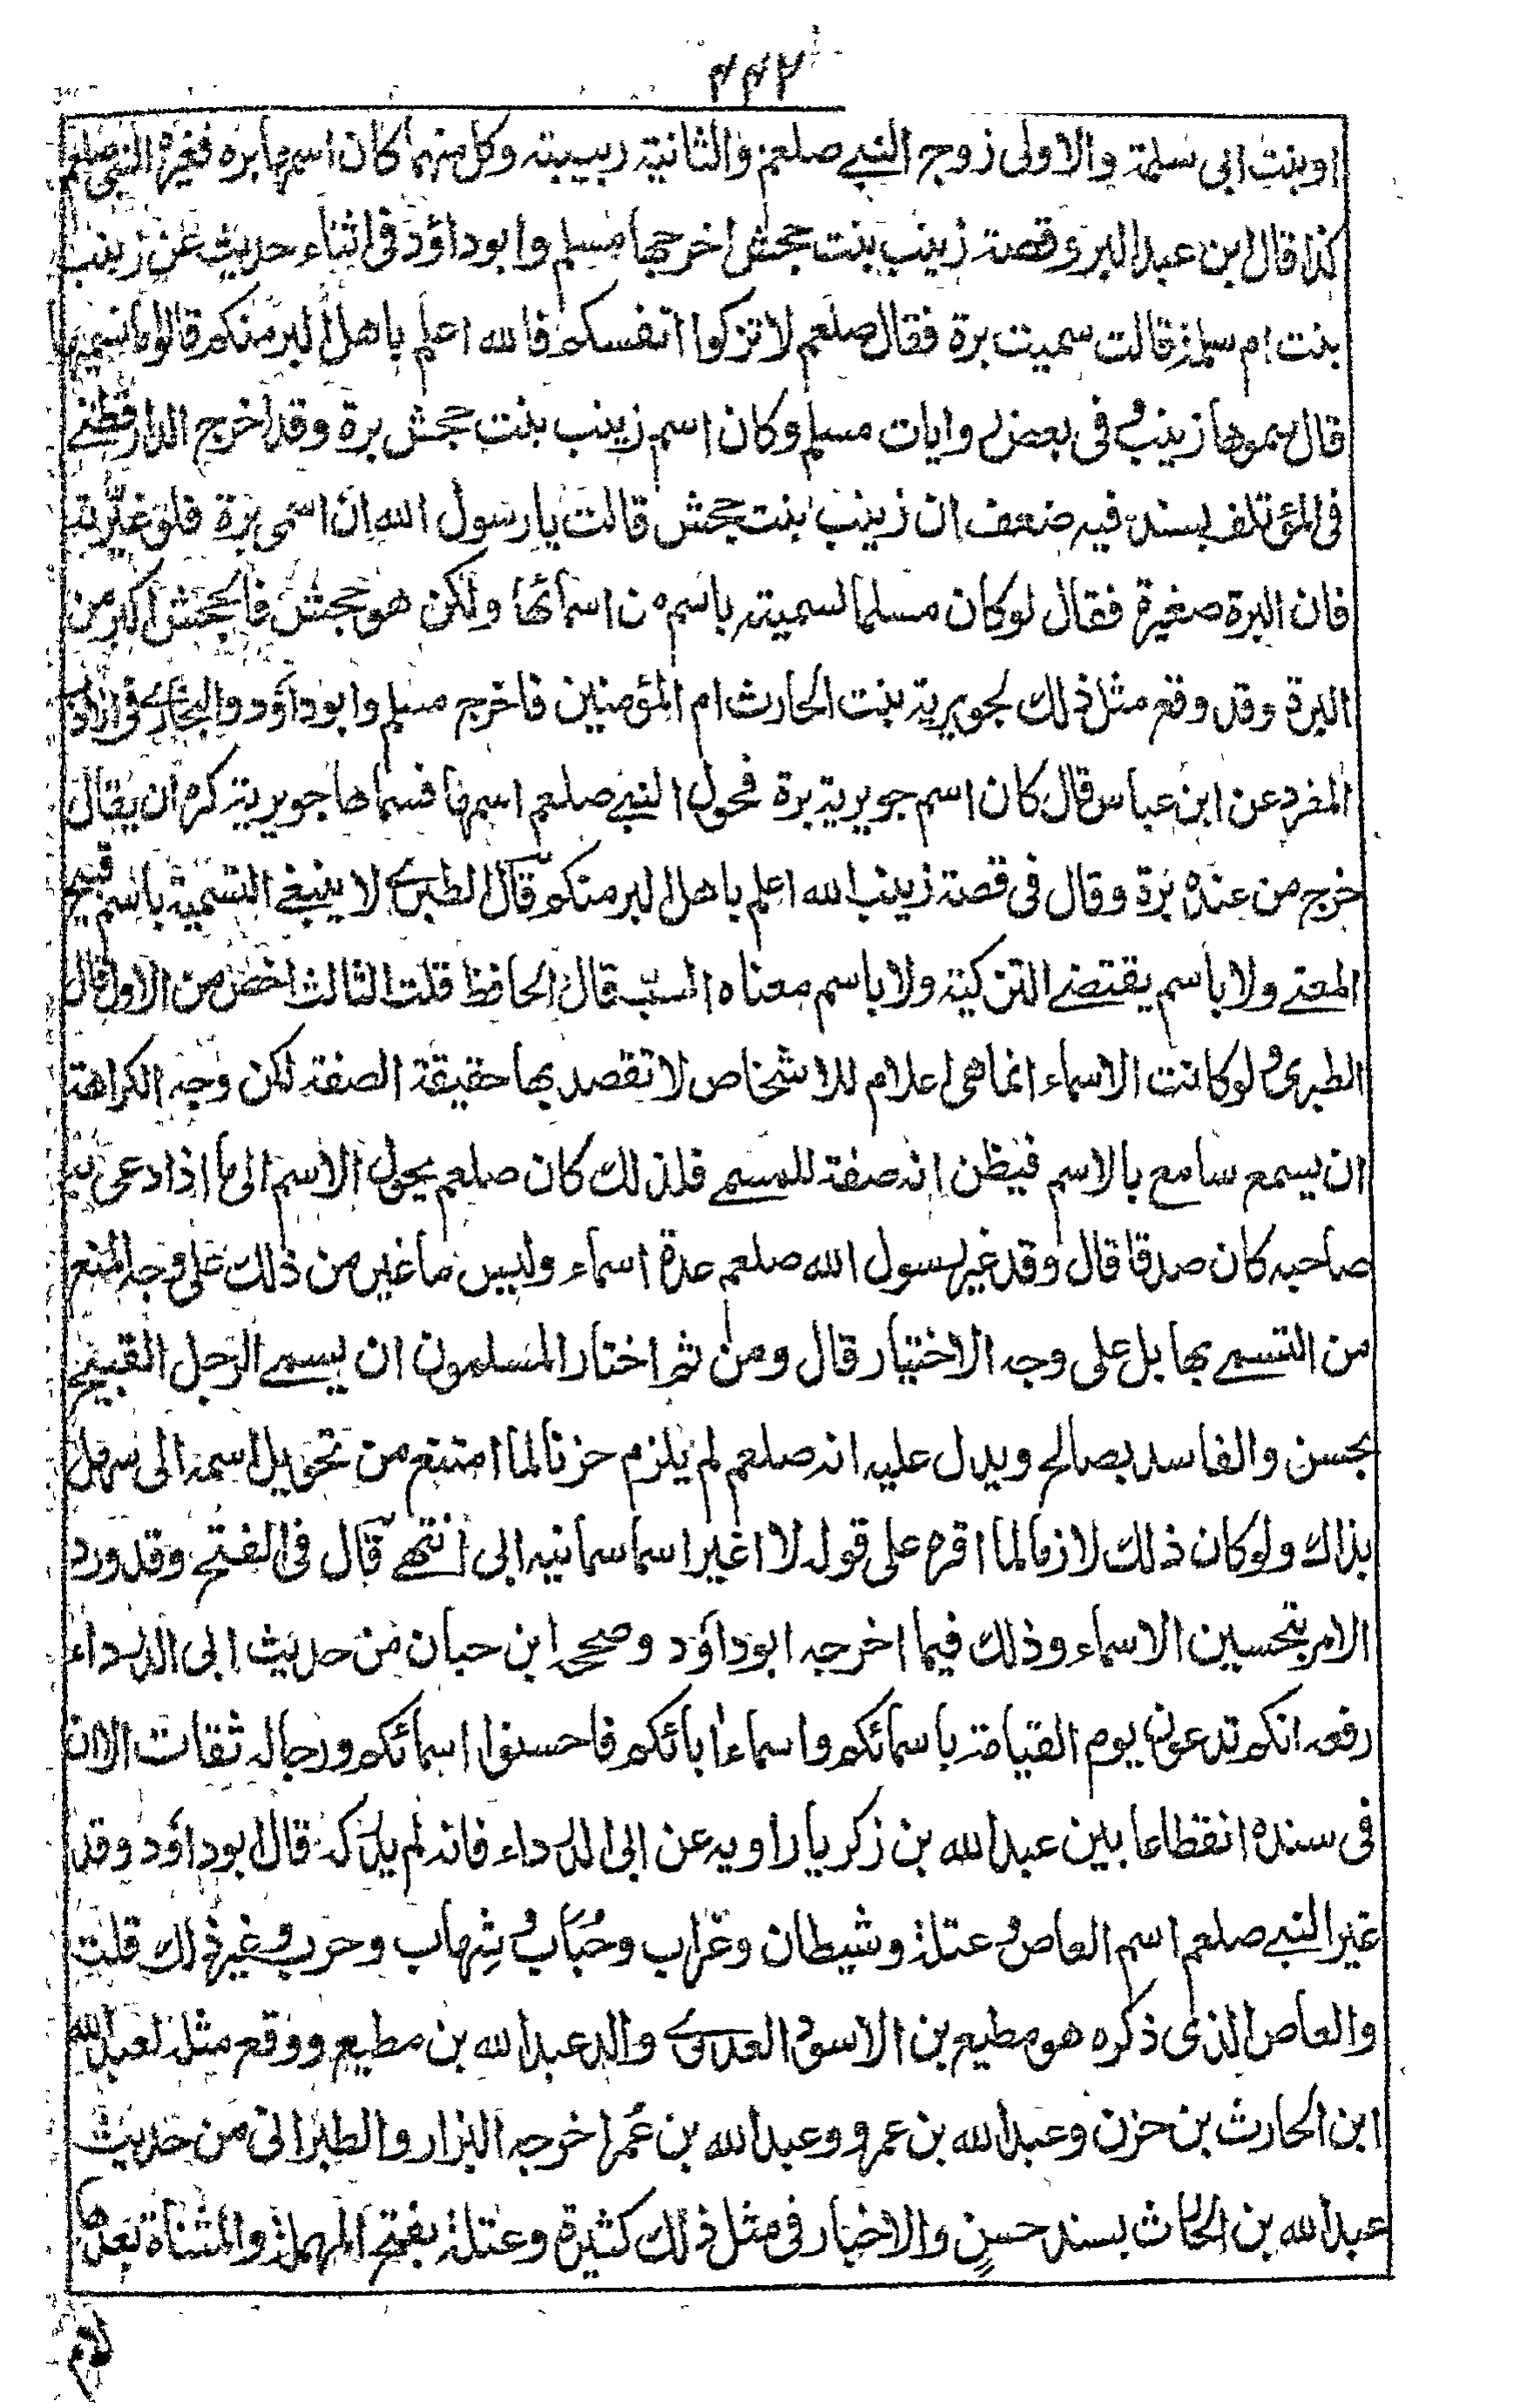 ۲۴۲
او بنت ابى سلمة والاولى زوج النبي صلعم والثانية ربيبته وكل منهما كان اسمها بره فغيره النبى صلعم
كذا قال ابن عبد البر وقصة زينب بنت جحش اخرجها مسلم وابو داؤد فى اثناء حديث عن زينب
بنت ام سلمة قالت سميت برة فقال صلعم لا تزكوا انفسكم فالله اعلم باهل البر منكم قالوا ما نسميها
قال سموها زينب و فى بعض روايات مسلم وكان اسم زينب بنت جحش برة وقد اخرج الدارقطني
فى المؤتلف بسند فيه ضعف ان زينب بنت جحش قالت يا رسول الله ان اسمى برة فلو غيّرته
فان البرة صغيرة فقال لو كان مسلما لسميته باسم من اسمائها ولكن هو جحش فالجحش اكبر من
البرة وقد وقع مثل ذلك لجويرية بنت الحارث ام المؤمنين فاخرج مسلم وابو داؤد والبخاري فى الادب
المفرد عن ابن عباس قال كان اسم جويرية برة فحول النبي صلعم اسمها فسماها جويرية كره ان يقال
خرج من عنده برة وقال فى قصة زينب الله اعلم باهل البر منكم قال الطبري لا ينبغي التسمية باسم قبيح
المعنے ولا باسم يقتضے التزكية ولا باسم معناه السبّ قال الحافظ قلت الثالث اخص من الاول قال
الطبرى و لو كانت الاسماء انما هى اعلام للاشخاص لا تقصد بها حقيقة الصفة لكن وجه الكراهة
ان يسمع سامع بالاسم فيظن انه صفة للمسمے فلذلك كان صلعم يحول الاسم الى ما اذا دعى به
صاحبه كان صدقا قال وقد غير رسول الله صلعم عدة اسماء وليس ما غير من ذلك على وجه المنع
من التسمے بها بل على وجه الاختيار قال ومن ثم اختار المسلمون ان يسمے الرجل القبيح
بحسن والفاسد بصالح ويدل عليه انه صلعم لم يلزم حزنا لما امتنع من تحويل اسمه الى سهل
بذاك ولو كان ذلك لازما لما اقره على قوله لا اغير اسما سمانيه ابى انتهے قال فى الفتح وقد ورد
الامر بتحسين الاسماء وذلك فيما اخرجه ابو داؤد وصححه ابن حبان من حديث ابى الدرداء
رفعه انكم تدعون يوم القيامة باسمائكم واسماء ابائكم فاحسنوا اسمائكم ورجاله ثقات الا ان
فى سنده انقطاعا بين عبد الله بن زكريا راويه عن ابى الدرداء فانه لم يدركه قال ابو داؤد وقد
غير النبے صلعم اسم العاص و عتلة وشيطان وغراب وحُبَاب و شِهاب وحرب و غير ذلك قلت
والعاص الذى ذكره هو مطيع بن الاسود العدوي والد عبد الله بن مطيع ووقع مثله لعبد الله
ابن الحارث بن حزن وعبد الله بن عمرو وعبد الله بن عُمر اخرجه البزار والطبرانى من حديث
عبد الله بن الحارث بسند حسنٍ والاخبار فى مثل ذلك كثيرة وعتلة بفتح المهملة والمثناة بعدها
لام